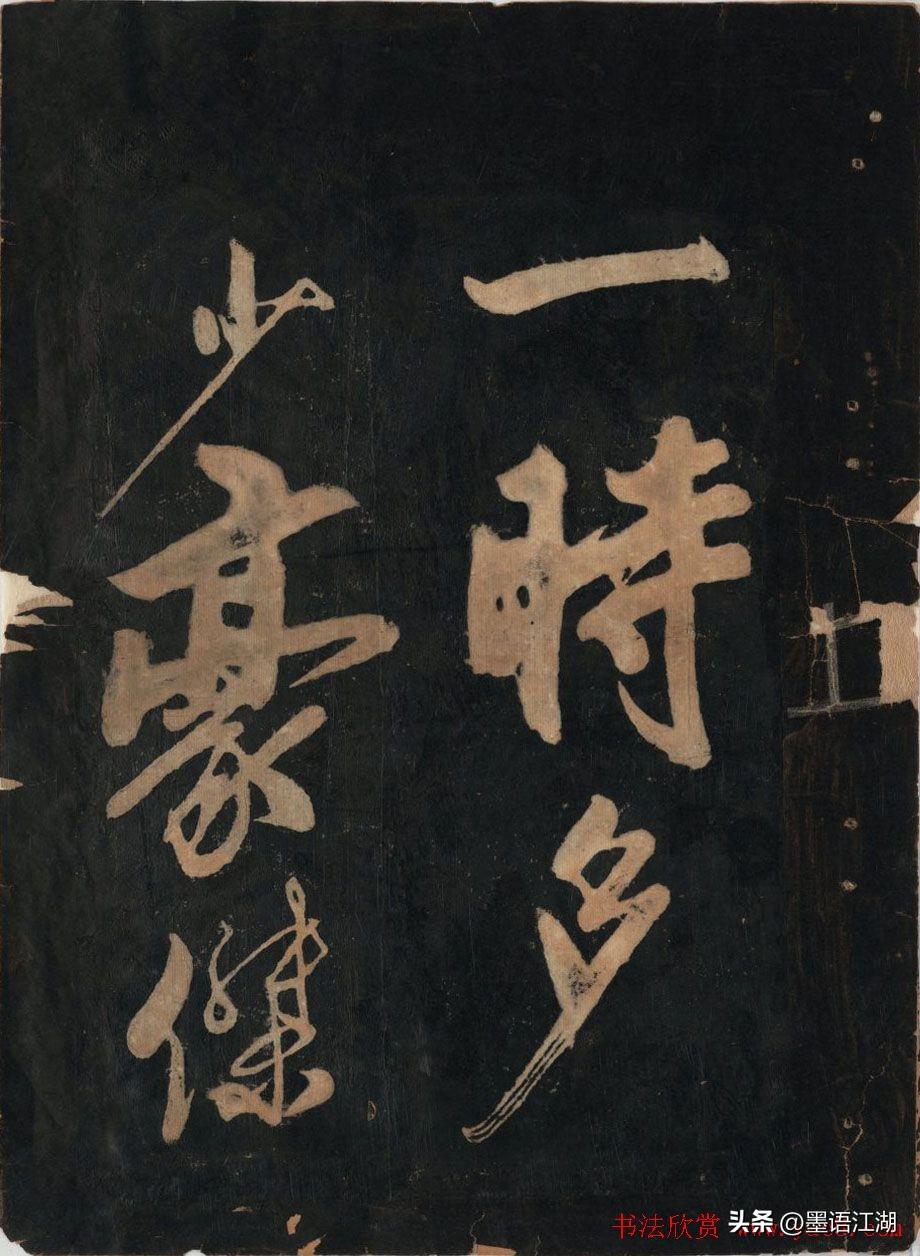 一時多
少豪傑
书法欣赏
头条 @墨语江湖